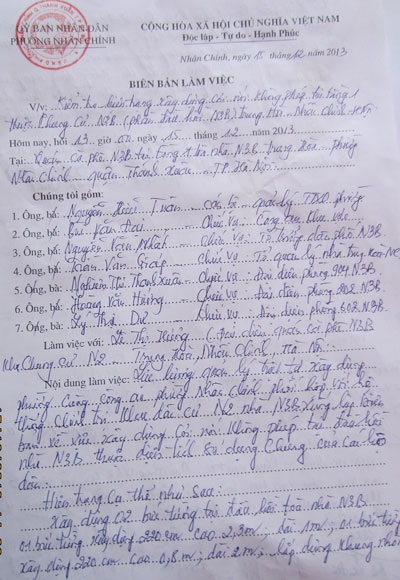 ỦY BAN NHÂN DÂN
PHƯỜNG NHÂN CHÍNH
CỘNG HÒA XÃ HỘI CHỦ NGHĨA VIỆT NAM
Độc lập - Tự do - Hạnh Phúc
Nhân Chính, ngày 15 tháng 12 năm 2013
BIÊN BẢN LÀM VIỆC
V/v: Kiểm tra hiện trạng xây dựng cơi nới không phép tại tầng 1
Chung cư N3B Trung Hòa - Nhân Chính
Hôm nay, hồi 13 giờ 00, ngày 15 tháng 12 năm 2013.
Tại: Quán cà phê N3B tại tầng 1 tòa nhà N3B Trung Hòa, phường
Nhân Chính, quận Thanh Xuân, TP Hà Nội.
Chúng tôi gồm:
1. Ông, bà: Nguyễn Tuấn cán bộ quản lý TTXD phường
2. Ông, bà: Bùi Văn Chức vụ: Công an khu vực
3. Ông, bà: Nguyễn Chức vụ: Tổ trưởng dân phố N3B
4. Ông, bà: Văn Chức vụ: Tổ quản lý nhà
5. Ông, bà: Nghiêm Thị Thanh Xuân Chức vụ: Đại diện phòng 904 N3B
6. Ông, bà: Hoàng Văn Hương Chức vụ: Đại diện phòng 802 N3B
7. Ông, bà: Lý Thị Dư Chức vụ: Đại diện phòng 602 N3B
Làm việc với: Thị Hương (Đại diện quán cà phê N3B
Khu Chung cư N2 Trung Hòa, Nhân Chính, Hà Nội
Nội dung làm việc: Lực lượng quản lý trật tự xây dựng
phường cùng công an phường Nhân Chính phối hợp với hệ
thống chính trị khu dân cư N2 nhà N3B lập biên
bản về việc xây dựng cơi nới không phép tại đầu hồi
nhà N3B thuộc diện tích sử dụng chung của các hộ
dân.
Hiện trạng cụ thể như sau:
Xây dựng 02 bức tường tại đầu hồi tòa nhà N3B.
01 bức tường xây dựng 220 cm cao 2,3m, dài 1m; 01 bức tường
xây dựng 220 cm cao 0,8m; dài 2m; lắp dựng khung